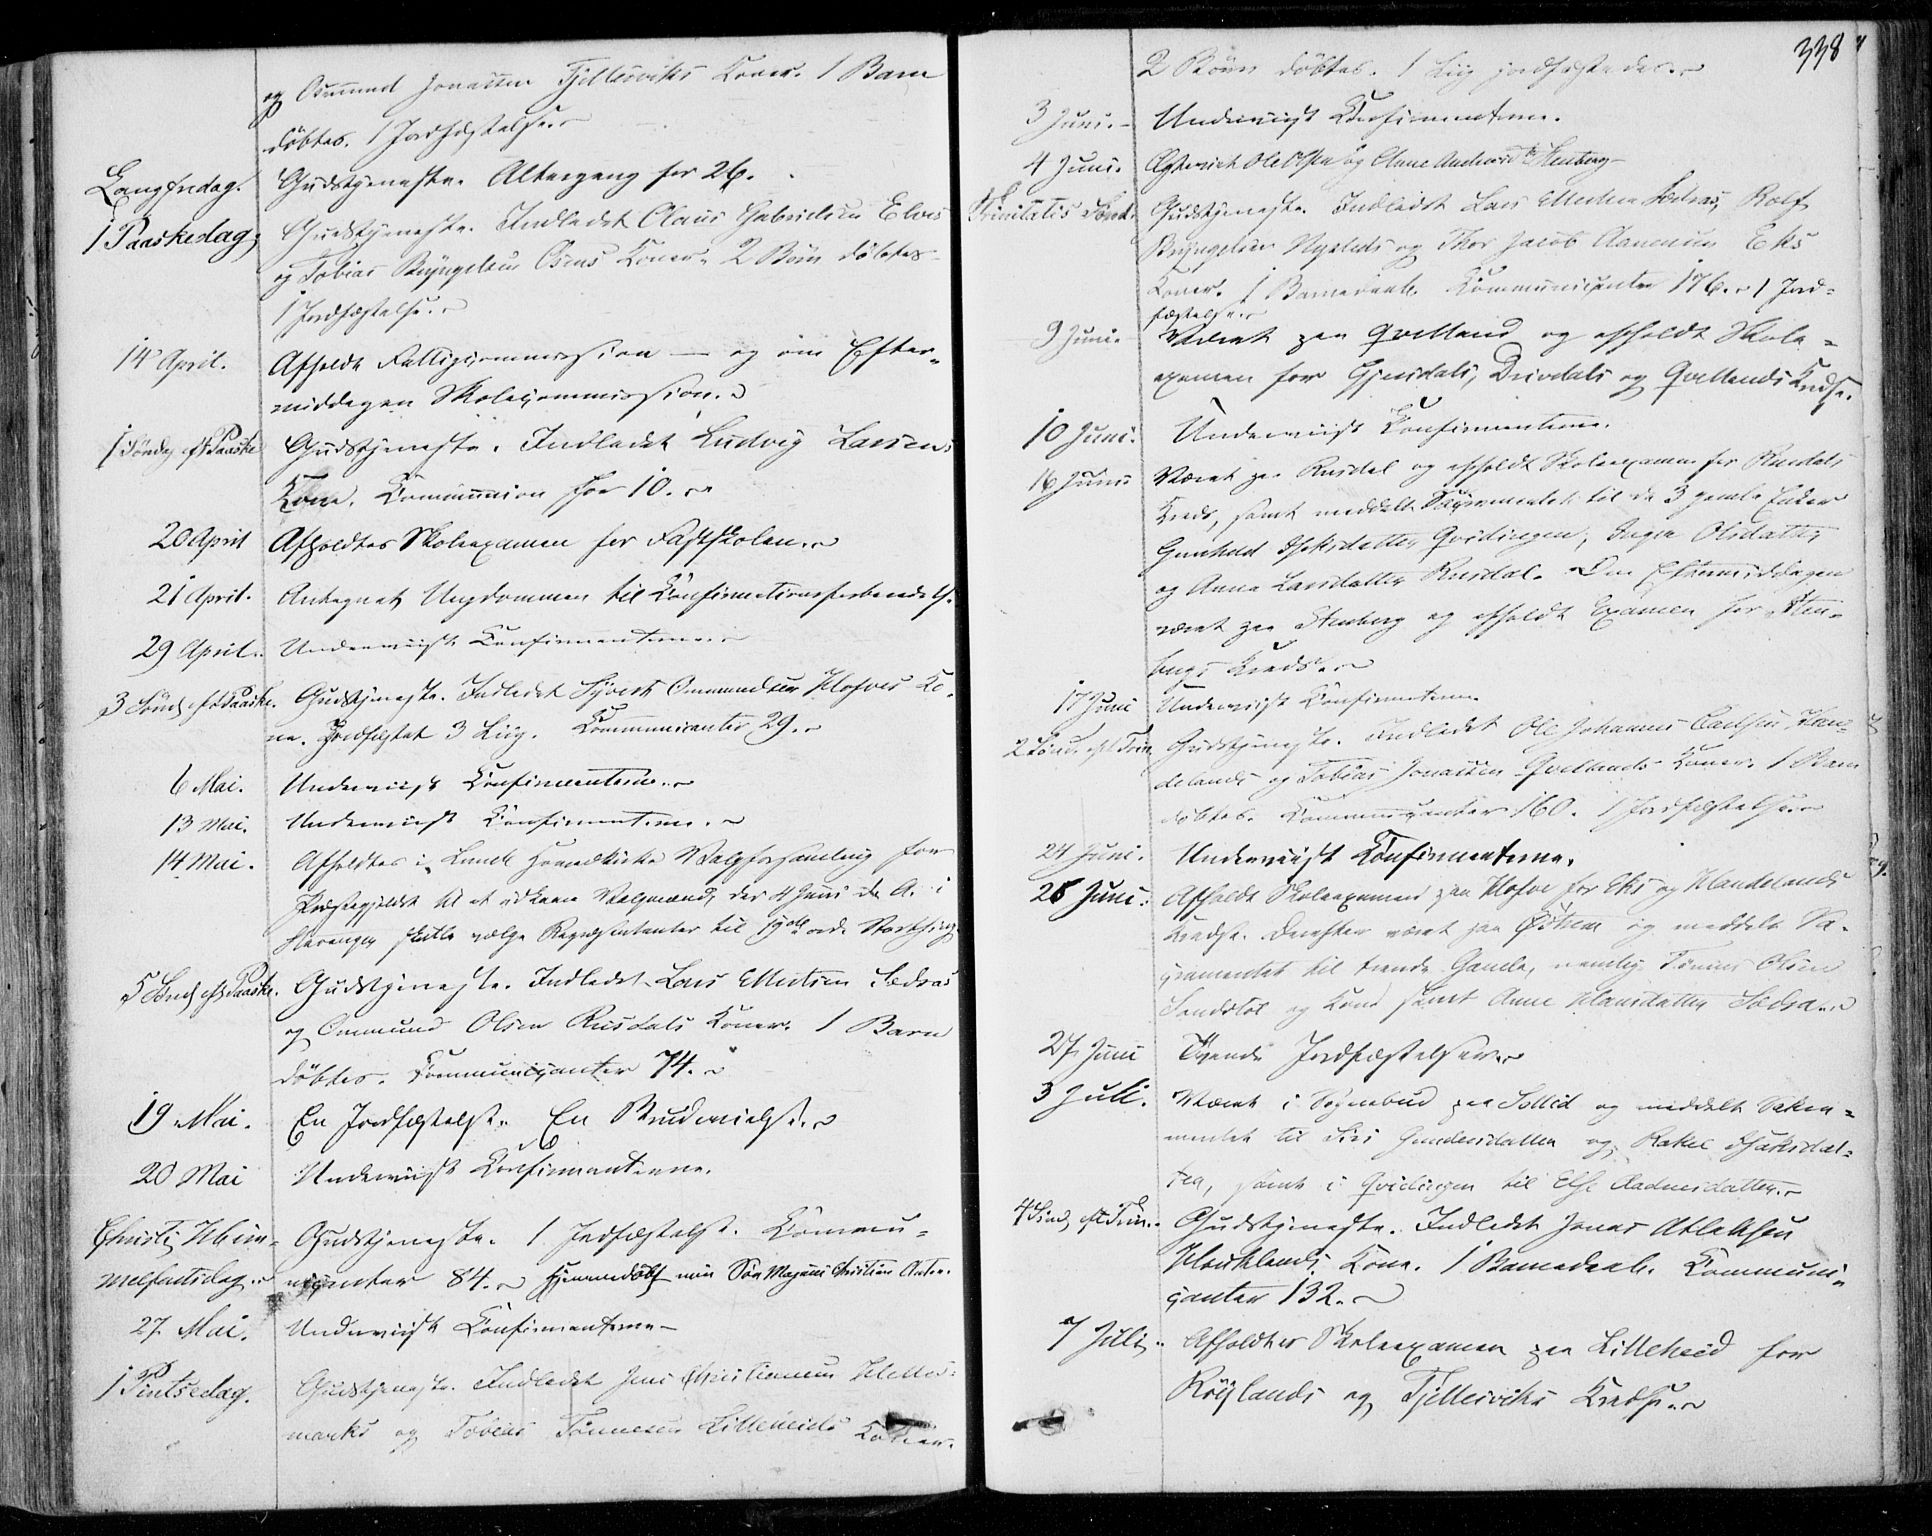 og Osmund Jonassen Fjellesviks Koner. 1 Barn
döbtes. 1 Jordfæstelse.
Langfredag. Gudstjeneste. Altergang for 26.
1 Paaskedag. Gudstjeneste. Indledet Claus Gabrielsen Elves
og Tobias Bryngelsen Osens Koner. 2 Börn döbtes
1 Jordfæstelse.
14 April. Afholdt Fattigcommission — og om Efter-
middagen Skolecommission.
1 Söndag eft Paaske Gudstjeneste. Indledet Ludvig Larsens
Kone. Communion for 10.
20 April Afholdtes Skoleexamen for Fastskolen.
21 April. Antegnet Ungdommen til Confirmationsforberedelse.
29 April. Underviist Confirmanterne.
3 Sönd eft Paaske. Gudstjeneste. Indledet Syvert Ommundsen Hofves Ko-
ne. Jordfæstet 3 Liig. Kommunicanter 29.
6 Mai. Underviist Confirmanterne.
13 Mai. Underviist Confirmanterne.
14 Mai. Afholdtes i Lunde Hovedkirke Valgforsamling for
Præstegjeldet til at udkaare Valgmænd, der 4 Juni d. A. i
Stavanger skulle vælge Repræsentanter til 19de ord. Storthing
5 Sönd eft Paaske. Gudstjeneste. Indledet Lars Martsen Sædras
og Ommund Olsen Rusdals Koner. 1 Barn
döbtes. Kommunicanter 74.
19 Mai. En Jordfæstelse. En Brudevielse.
20 Mai Underviist Confirmanterne.
Christi Him- Gudstjeneste. 1 Jordfæstelse. Commu-
melfartsdag. nicanter 84. Hjemmedöbt min Sön Magnus Christian Anton.
27 Mai. Underviist Confirmanterne
1 Pintsedag. Gudstjeneste. Indledet Jens Christiansen
marks og Tobias Tönnesen Lilleheids Koner.
338
2 Börn döbtes. 1 Liig jordfæstedes.
3 Juni. Underviist Confirmanterne.
4 Juni. Ægteviet Ole Olsen og Stenberg
Trinitatis Sönd. Gudstjeneste. Indledet Lars Martsen Sædras, Rolf
Bryngelsen Nyelids og Thor Jacob Aanensen Eks
Koner. 1 Barnedaab. Kommunicanter 176. 1 Jord-
fæstelse.
9 Juni. Været paa Qvelland og afholdt Skole-
examen for Gjersdals, Drivdals og Qvellands Kredse.
10 Juni. Underviist Confirmanterne.
16 Juni Været paa Rusdal og afholdt Skoleexamen for Rusdals
Kreds, samt meddelt Sacramentet til de 3 gamle Enker
Gunhild Isaksdatter Qvidingen, Inger Olsdatter
og Anna Larsdatter Rusdal. Om Eftermiddagen
været paa Stenberg og afholdt Examen for Sten-
bergs Kreds.
17 Juni Underviist Confirmanterne.
2 Sönd. eft Trin. Gudstjeneste. Indledet Ole Johannes Carlsen Hau-
delands og Tobias Jonassen Qvellands Koner. 1 Barn
döbtes. Communicanter 160. 1 Jordfæstelse.
24 Juni. Underviist Confirmanterne.
25 Juni. Afholdt Skoleexamen paa Hofve for Eks og Haudelands
Kredse. Derefter været paa og meddelt Sa-
cramentet til trende Gamle, nemlig Tönnes Olsen
Sandstöl og Kone samt Anne Hansdatter Sædras.
27 Juni Tvende Jordfæstelser.
3 Juli. Været i Sognebud paa Sollid og meddelt Sakra-
mentet til Siri Gundersdatter og Rakel Isaksdat-
ter, samt i Qvidingen til Else Aadnesdatter.
4 Sönd. eft Trin. Gudstjeneste. Indledet Jonas Atlaksen
Houklands Kone. 1 Barnedaab. Communi-
canter 132.
7 Juli. Afholdtes Skoleexamen paa Lilleheid for
Röyslands og Fjellesviks Kredse.